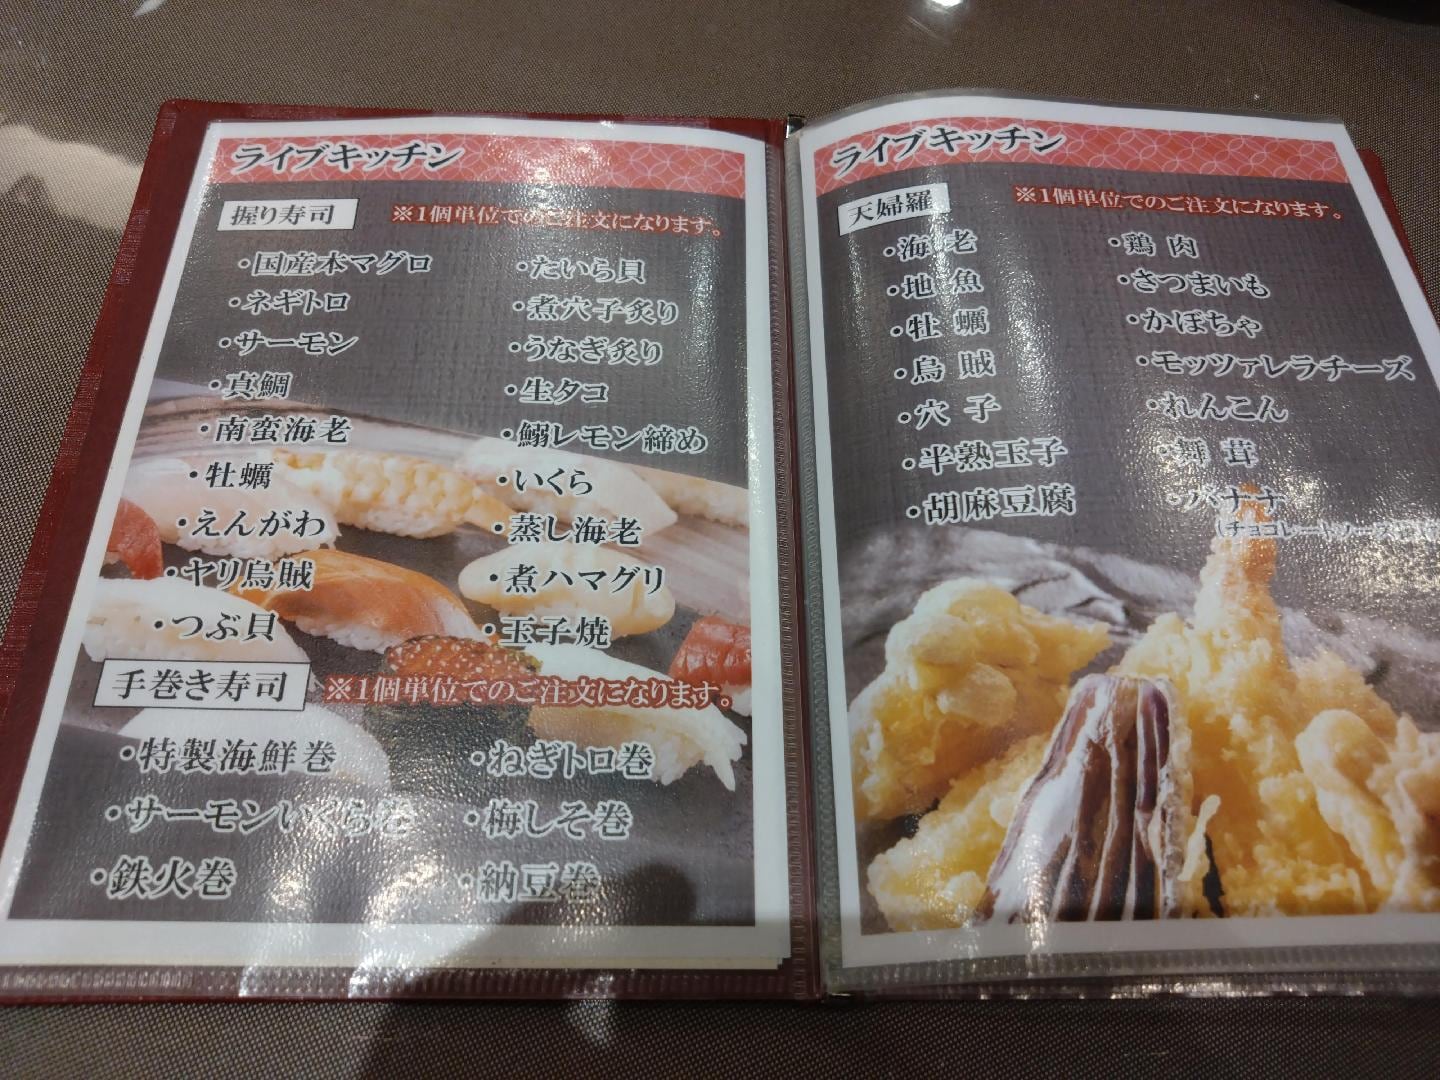 ライブキッチン
握り寿司
※1個単位でのご注文になります。
・国産本マグロ
・ネギトロ
・サーモン
・真鯛
・南蛮海老
・牡蠣
・えんがわ
・ヤリ烏賊
・つぶ貝
・たいら貝
・煮穴子炙り
・うなぎ炙り
・生タコ
・鰯レモン締め
・いくら
・蒸し海老
・煮ハマグリ
・玉子焼
手巻き寿司
※1個単位でのご注文になります。
・特製海鮮巻
・サーモンいくら巻
・鉄火巻
・ねぎトロ巻
・梅しそ巻
・納豆巻
ライブキッチン
天婦羅
※1個単位でのご注文になります。
・海老
・地魚
・牡蠣
・烏賊
・穴子
・半熟玉子
・胡麻豆腐
・鶏肉
・さつまいも
・かぼちゃ
・モッツァレラチーズ
・れんこん
・舞茸
・バナナ
(チョコレートソース